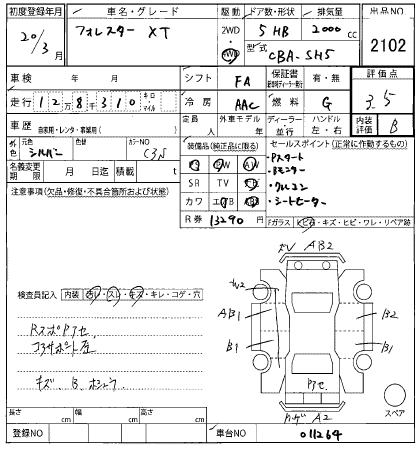 初度登録年月 車名・グレード 駆動 ドア数・形状 排気量 出品NO
20/3月 フォレスター XT 2WD 4WD 5 HB 2000 cc 2102
型式 CBA-SH5
車検 年 月 シフト FA 保証書 有・無 評価点
走行 12万8千310 キロ・マイル 冷房 AAC 燃料 G 3.5
車歴 自家用・レンタ・事業用( ) 定員 人 外車モデル 年 ディーラー 並行 ハンドル 左・右 内装評価 B
外色 元色 シルバー 色替 カラーNO C3N 装備品(純正品に限る) セールスポイント(正常に動作するもの)
名義変更期限 月 日迄 積載 t PS AW PW
SR TV
カワ エアB
R券 13290
Pスタート
Bモニター
クルコン
シートヒーター
注意事項(欠品・修復・不具合箇所および状態)
Fガラス トビ石・キズ・ヒビ・ワレ・リペア跡
AB2
AB1 B2
B1 B1
検査員記入 内装 汚レ・スレ・キズ・キレ・コゲ・穴
キズ B
A2
スペア
長さ cm 幅 cm 高さ cm
登録NO 車台NO 011264